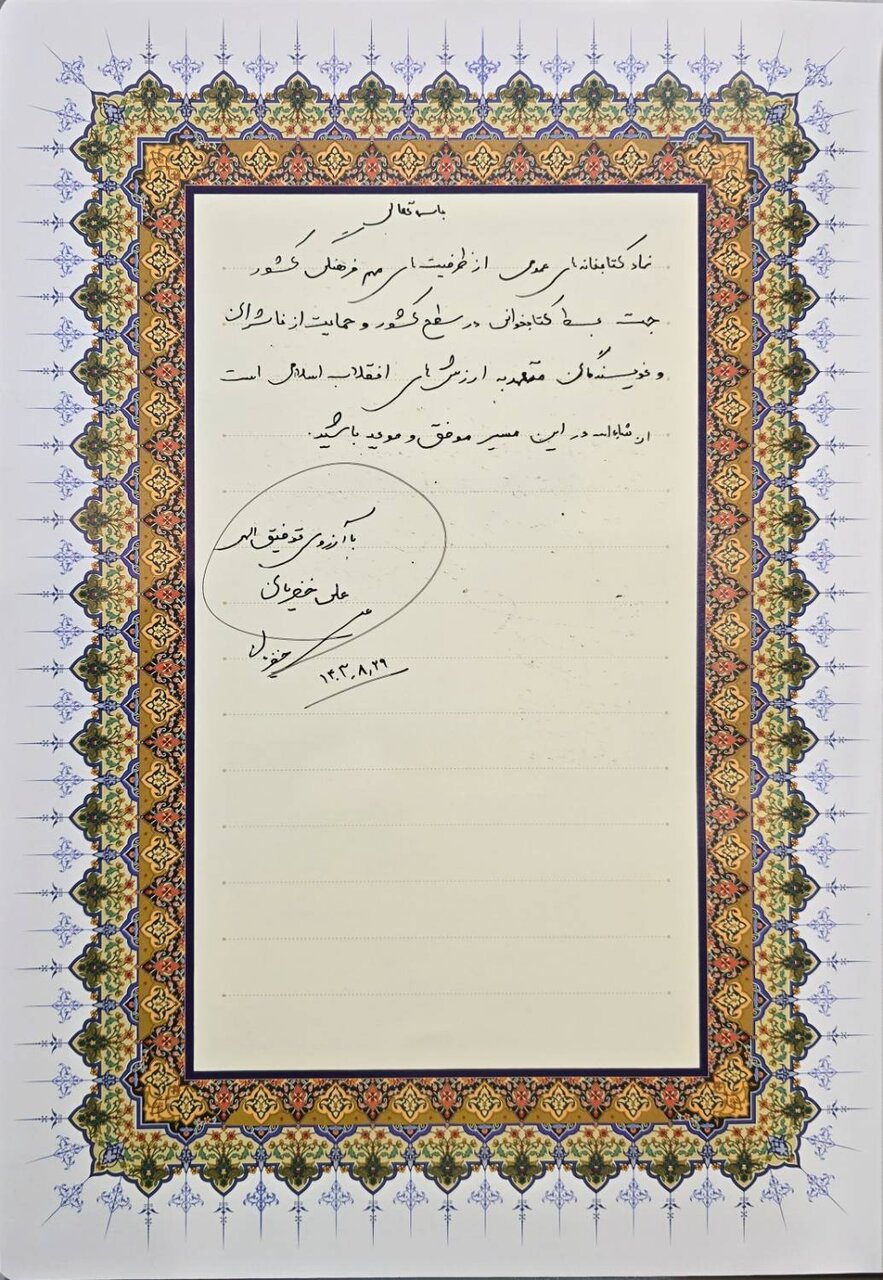 باسمه تعالی
نهاد کتابخانه‌های عمومی از ظرفیت‌های مهم فرهنگی کشور
جهت بسط کتابخوانی در سطح کشور و حمایت از ناشران
و نویسندگان متعهد به ارزش‌های انقلاب اسلامی است
ان شاءالله در این مسیر موفق و موید باشید.
با آرزوی توفیق الهی
علی خضریان
۱۴۰۳٫۸٫۲۹